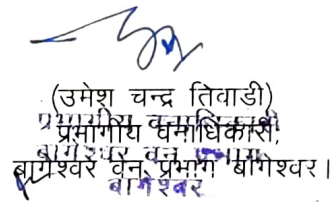 (उमेश चन्द्र तिवाडी)
प्रभागीय वनाधिकारी,
बागेश्वर वन प्रभाग बागेश्वर।
प्रभागीय वनाधिकारी
बागेश्वर वन प्रभाग
बागेश्वर